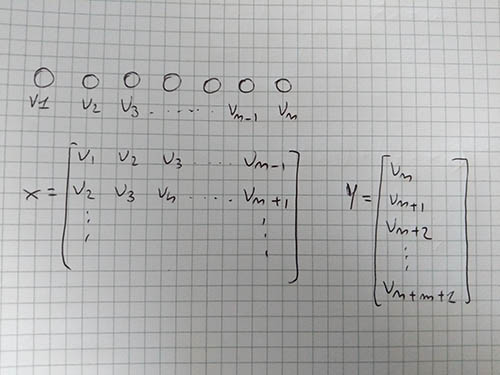 V1 V2 V3 ........ Vn-1 Vn
X = [ V1 V2 V3 ..... Vn-1 ]
V2 V3 Vn ..... Vn+1
Y = [ Vn
Vn+1
Vn+2
Vn+m+2 ]